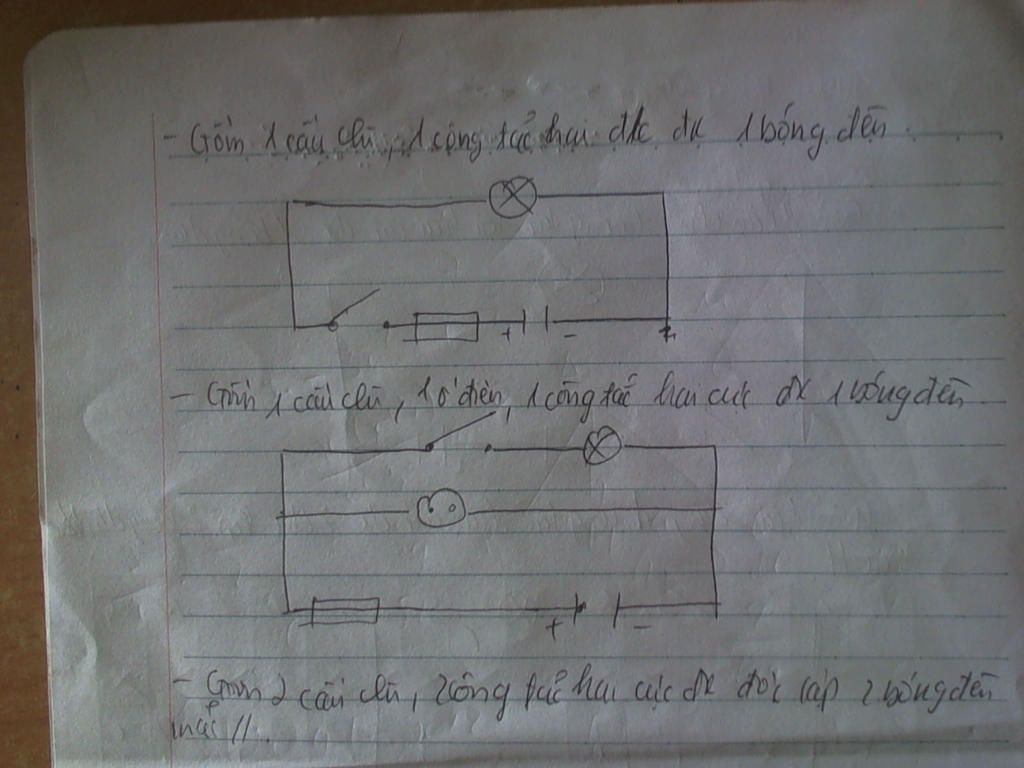 - Gồm 1 cầu chì, 1 công tắc hai đk 1 bóng đèn.
+ -
- Gồm 1 cầu chì, 1 ổ điện, 1 công tắc hai cực đk 1 bóng đèn.
+ -
- Gồm 2 cầu chì, 2 công tắc hai cực đk độc lập 2 bóng đèn
mắc //.